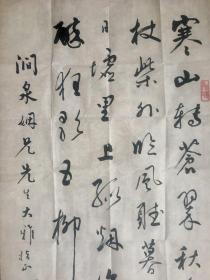 寒山轉蒼翠秋
杖柴外臨風聽暮
日墟里上孤烟
醉狂歌五柳
澗泉姻兄先生大雅指正